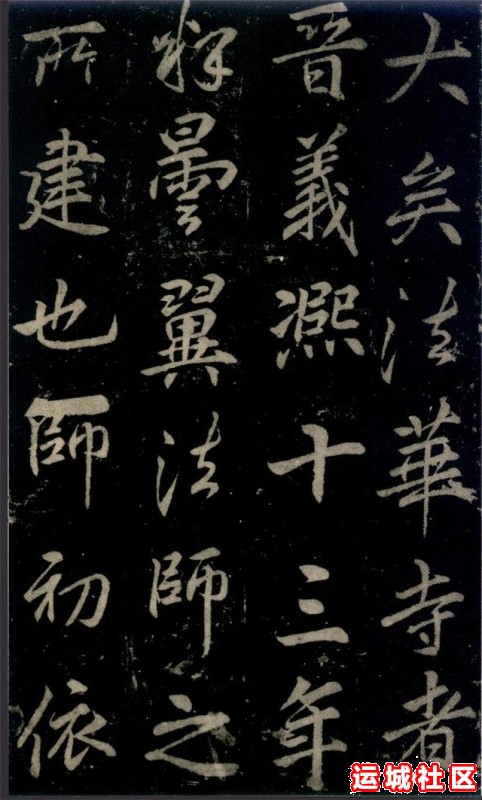 大矣法華寺者
晉義熈十三年
釋曇翼法師之
所建也師初依
运城社区